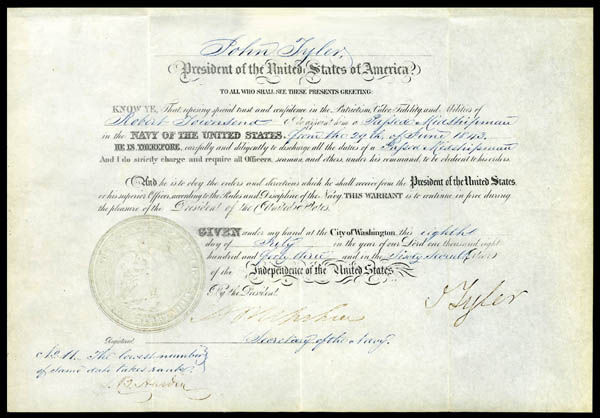 John Tyler,
President of the United States of America,
TO ALL WHO SHALL SEE THESE PRESENTS GREETING:
KNOW YE, That reposing special trust and confidence in the Patriotism, Valor, Fidelity, and Abilities of
Robert Townsend I do appoint him a Passed Midshipman
in the NAVY OF THE UNITED STATES, from the 29th of June 1843.
HE IS THEREFORE, carefully and diligently to discharge all the duties of a Passed Midshipman
And I do strictly charge and require all Officers, seamen, and others, under his command, to be obedient to his orders.
And he is to obey the orders and directions which he shall receive from the President of the United States,
or his superior Officer, according to the Rules and Discipline of the Navy. THIS WARRANT is to continue in force during
the pleasure of the President of the United States.
GIVEN under my hand at the City of Washington, this eighth
day of July in the year of our Lord one thousand eight
hundred and forty three and in the Sixty Seventh year
of the Independence of the United States.
By the President, J Tyler
Secretary of the Navy.
Registered
No 11. The lowest number
of same date takes rank.